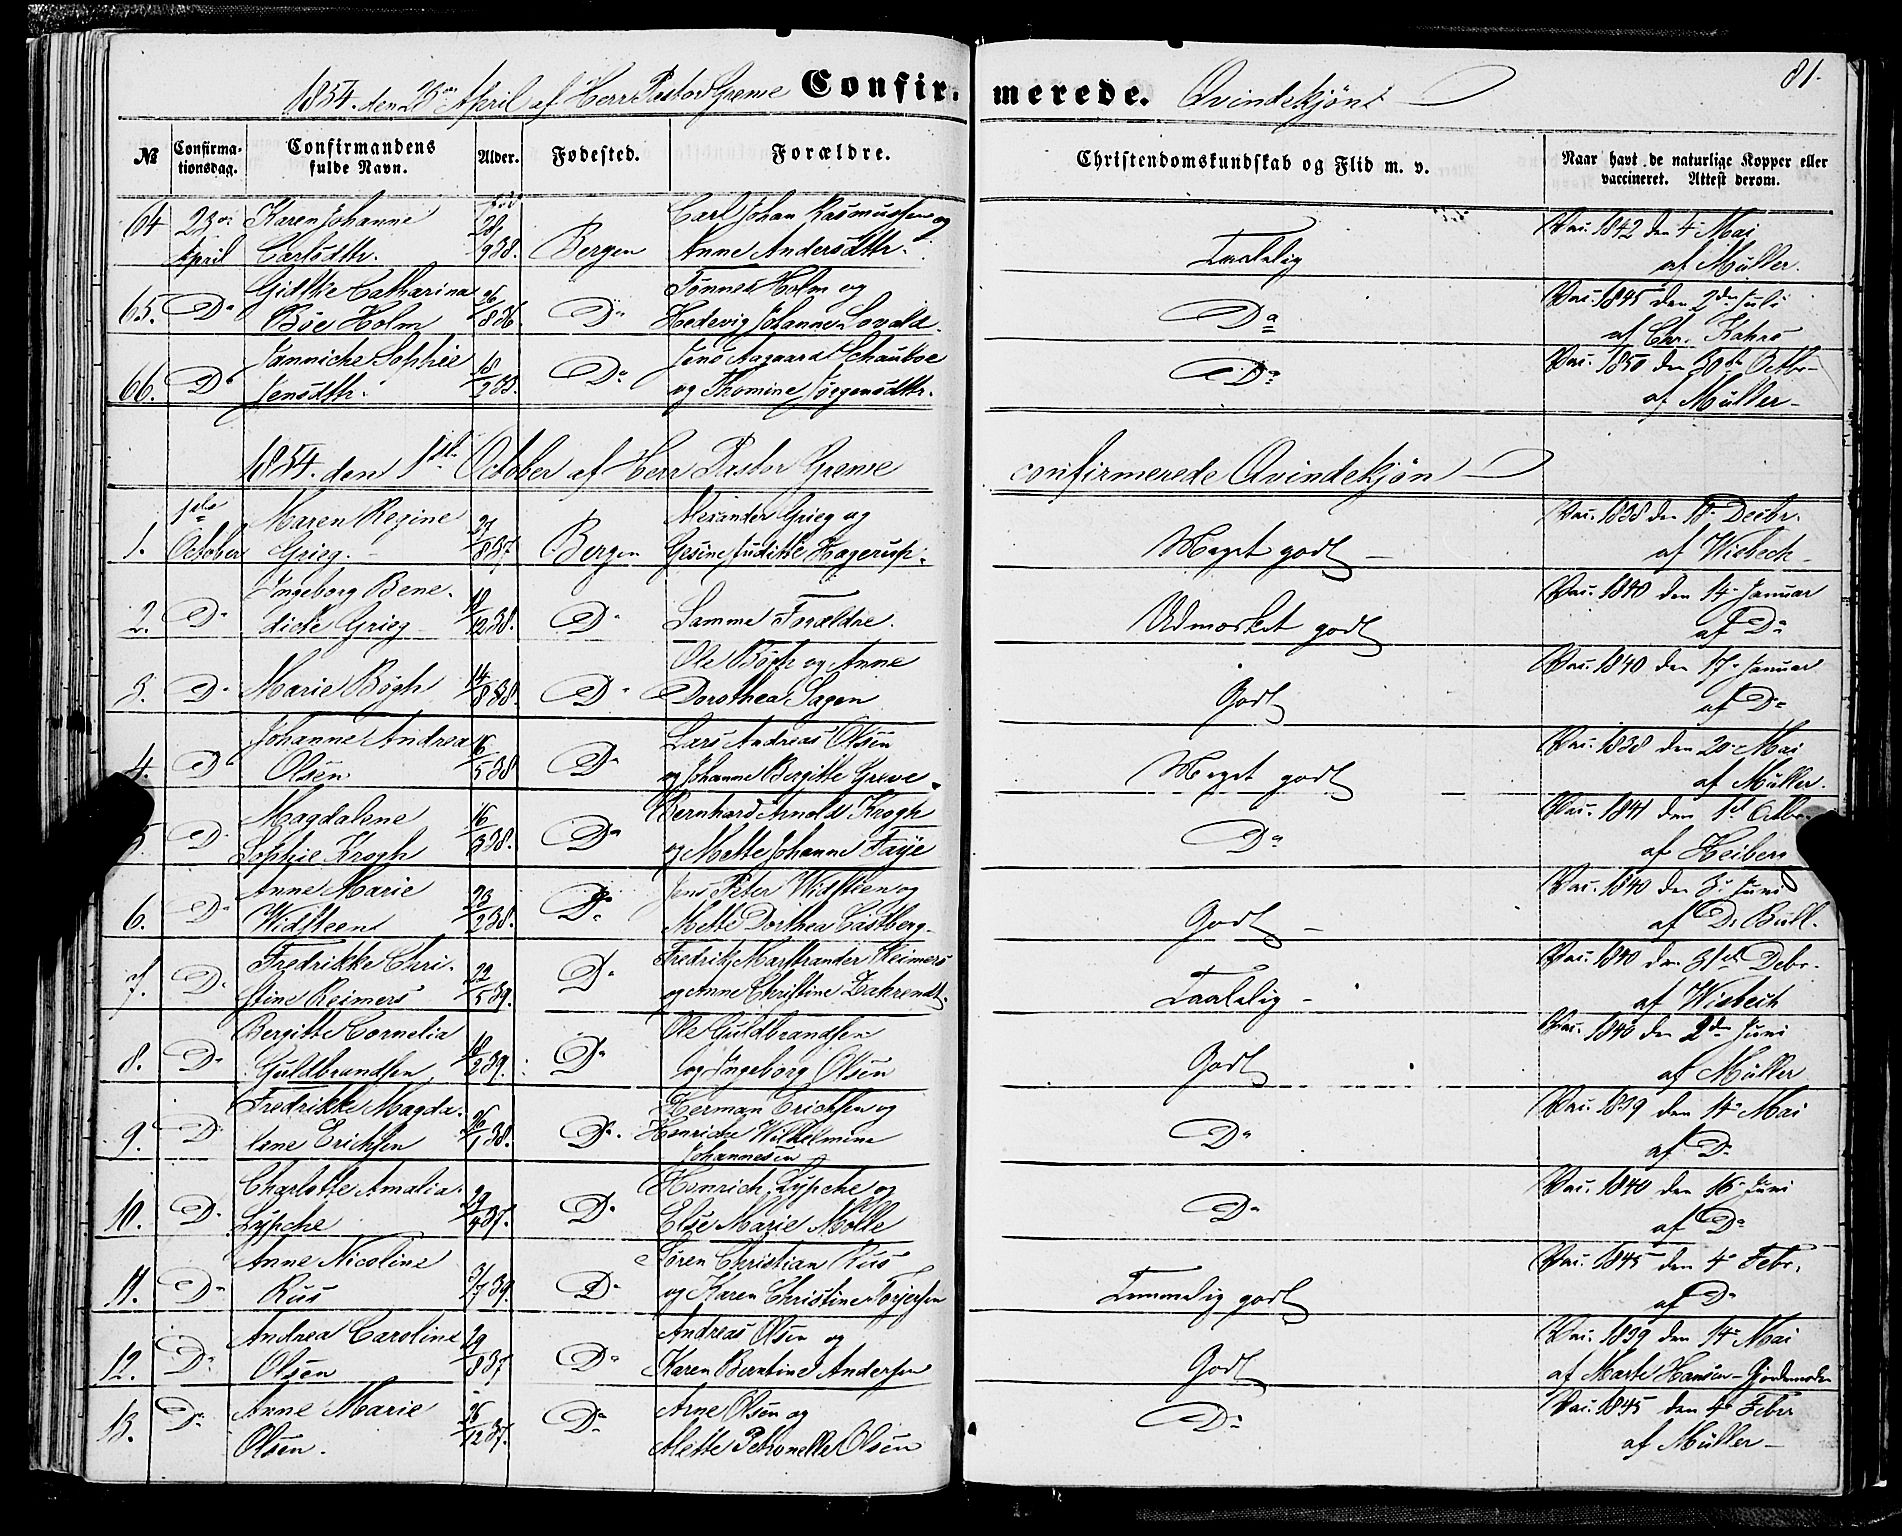 1854. den 23de April af Herr Pastor Greve Confirmerede. Qvindekjönt 81.
№ Confirmationsdag. Confirmandens fulde Navn. Alder. Fødested. Forældre. Christendomskundskab og Flid m. v. Naar havt de naturlige Kopper eller vaccineret. Attest derom.
64 23de Karen Johanne 28 Carl Johan Rasmussen og Vac. 1842 den 4 Mai
April Carlsdttr. 9 38. Bergen Anne Andersdttr. Taalelig af Müller.
65. Do Gidske Catharina 26 Tönnes Holm og Vac. 1845 den 2den Juli
Böe Holm 8 36. Do Hedevig Johanne Lovald. Do af Chr. Kahrs
66. Do Jannicke Sophie 18 Jens Aagaard Schauboe Vac. 1850 den 30te Octbr
Jensdttr. 2 38. Do og Thomine Jörgensdttr. Do af Müller
1854. den 1ste October af Herr Pastor Greve confirmerede Qvindekjön
1ste Maren Regine 27 Alexander Grieg og Vac. 1838 den 18 Decbr.
1. October Grieg. 8 37. Bergen Gesine Judithe Hagerup. Meget godt af Wisbech
2. Do Ingeborg Bene- 19 Vac. 1840 den 14 Januar
dicte Grieg 12 38. Do Samme Forældre. Udmærket godt af Do
3. Do Marie Bögh 14 Ole Bögh og Anne Vac. 1840 den 17 Januar
8 38. Do Dorothea Sagen Godt af Do
4. Do Johanne Andrea 16 Lars Andreas Olsen Vac. 1838 den 20 Mai
Olsen 5 38 Do og Johanne Bergitte Greve. Meget godt af Müller.
Magdalene 16 Bernhard Arnold Krogh Vac. 1841 den 1st Octbr.
Do Sophie Krogh 3 38. Do og Mette Johanne Faye Do af Heiberg
6. Do Anne Marie 23 Jens Peter Widsteen og Vac. 1840 den 3 Juni
Widsteen 2 38. Do Mette Dorthea Castberg Godt af Dr Bull.
7. Do Fredrikke Chri- 22 Fredrik Marstrander Reimers Vac. 1840 den 31te Debr.
stine Reimers 5 39. Do og Anne Christine Zahrendt. Taalelig af Wisbech
8. Do Bergitte Cornelia 10 Ole Guldbrandsen Vac. 1840 den 2den Juni
Guldbrandsen 3 39. Do og Ingeborg Olsen Godt af Müller
9. Do Fredrikke Magda- 26 Herman Erichsen og Vac. 1839 den 14 Mai
lene Erichsen 1 38. Do Henricke Wilhelmine Johannesen Do af Do
10. Do Charlotte Amalia 29 Henrich Lypche og Vac. 1840 den 16 Juni
Lypche 4 37. Do Else Marie Mölle Do af Do
11. Do Anne Nicoline 31 Sören Christian Rus Vac. 1845 den 4 Febr.
Rus 7 39. Do og Karen Christine Torjersen Temmelig godt af Do
12. Do Andrea Caroline 29 Andreas Olsen og Vac. 1839 den 14 Mai
Olsen 8 37 Do Karen Berntine Andersen Godt af Marte Hansen Gjordemoder
13. Do Anne Marie 25 Arne Olsen og Vac. 1845 den 4 Febr
Olsen. 12 37. Do Mette Petronelle Olsen Do af Müller